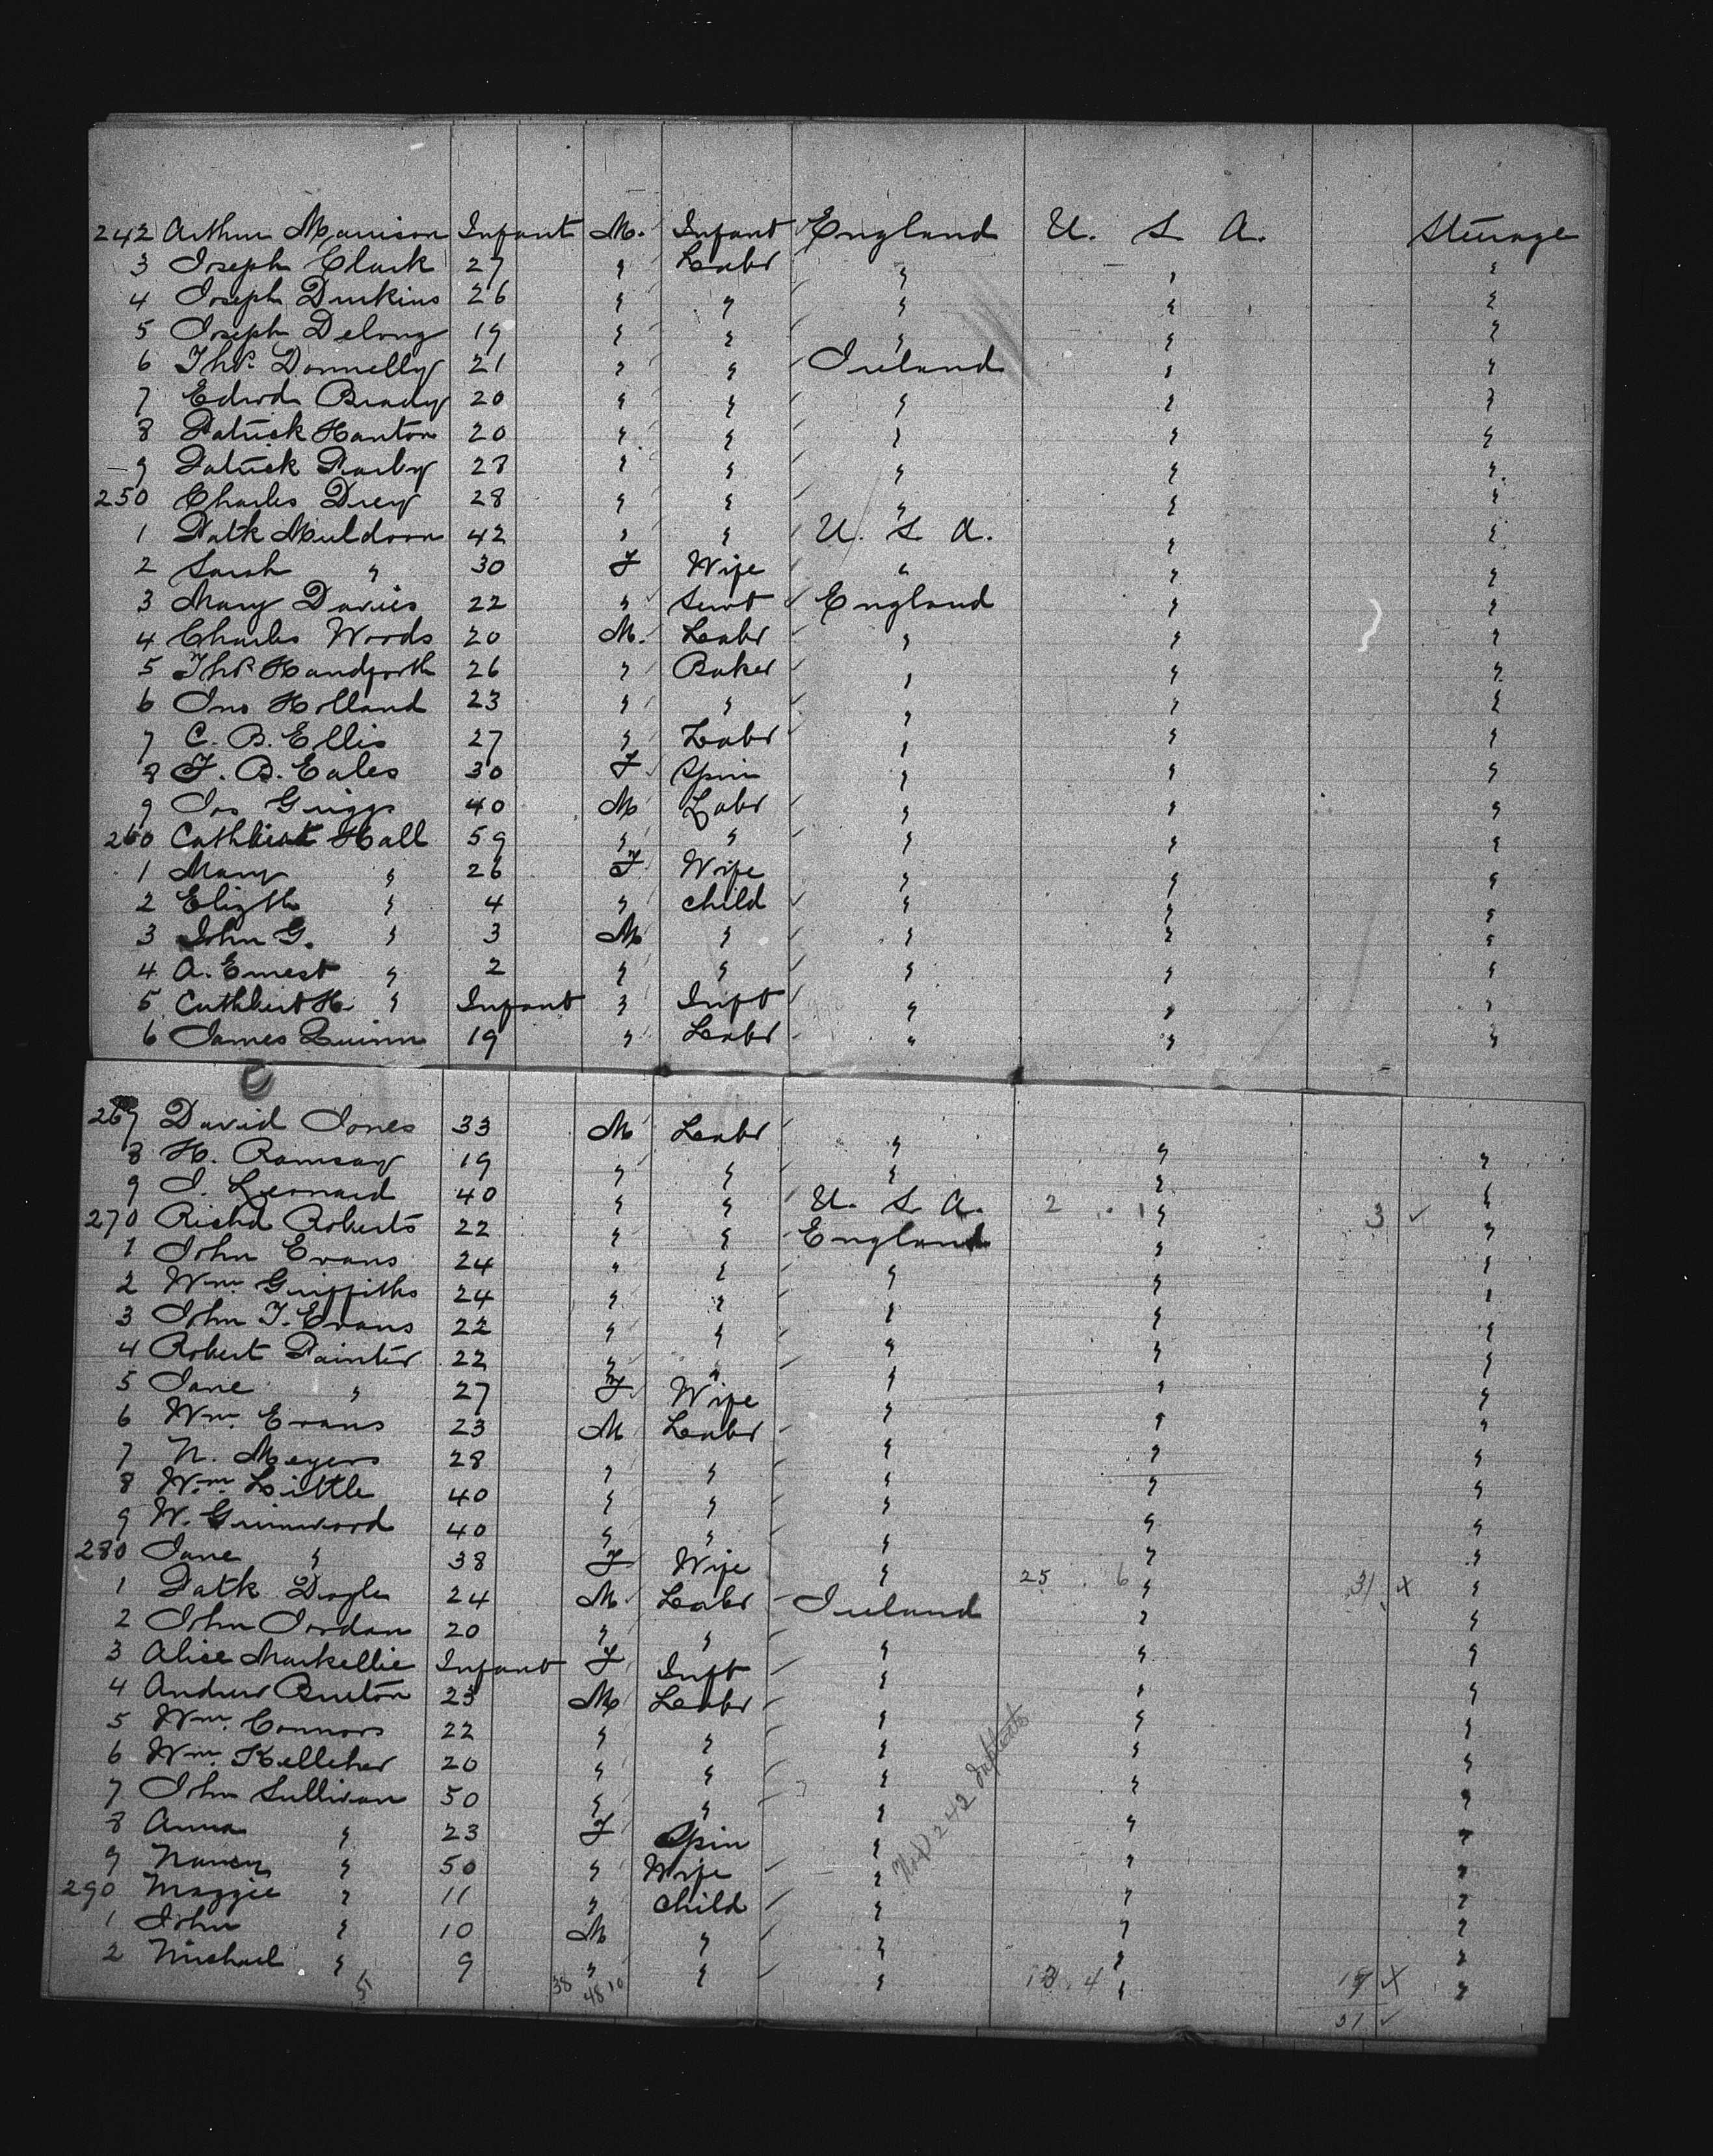 242 Arthur Morrison Infant M. Infant England U. S. A. Steerage
3 Joseph Clark 27 " Labr " " "
4 Joseph Durkins 26 " " " " "
5 Joseph Delong 19 " " " " "
6 Thos. Donnelly 21 " " Ireland " "
7 Edwd Brady 20 " " " " "
8 Patrick Hanton 20 " " " " "
9 Patrick 28 " " " " "
250 Charles Drey 28 " " " " "
1 Patk Muldoon 42 " " U. S. A. " "
2 Sarah " 30 F Wife " " "
3 Mary Davies 22 " Servt England " "
4 Charles Woods 20 M. Labr " " "
5 Thos Handforth 26 " Baker " " "
6 Jno Holland 23 " " " " "
7 C. B. Ellis 27 " Labr " " "
8 F. B. Eales 30 F Spin " " "
9 Jos Griggs 40 M Labr " " "
260 Cuthbert Hall 59 " " " " "
1 Mary " 26 F Wife " " "
2 Elizth " 4 " Child " " "
3 John G. " 3 M " " " "
4 A. Ernest " 2 " " " " "
5 Cuthbert H. " Infant " Inft " " "
6 James Quinn 19 " Labr " " "
267 David Jones 33 M Labr " " "
8 H. Ramsay 19 " " " " "
9 J. Leonard 40 " " U. S. A. 2 . 1 " 3 ✓ "
270 Richd Roberts 22 " " England " "
1 John Evans 24 " " " " "
2 Wm. Griffiths 24 " " " " "
3 John T. Evans 22 " " " " "
4 Robert Painter 22 " " " " "
5 Jane " 27 F Wife " " "
6 Wm. Evans 23 M Labr " " "
7 N. Meyers 28 " " " " "
8 Wm. Little 40 " " " " "
9 W. Grimwood 40 " " " " "
280 Jane " 38 F Wife " 25 . 6 " 31 x "
1 Patk Doyle 24 M Labr Ireland " "
2 John Jordan 20 " " " " "
3 Alice Markellie Infant F Inft " " "
4 Andrew Burton 23 M Labr " " "
5 Wm. Connors 22 " " " " "
6 Wm. Kelleher 20 " " " " "
7 John Sullivan 50 " " " " "
8 Anna " 23 F Spin " " "
9 Nancy " 50 " Wife " " "
290 Maggie " 11 " Child " " "
1 John " 10 M " " " "
2 Michael " 9 " " " 13 . 4 " x "
5 38 48 10 51 ✓
No 242